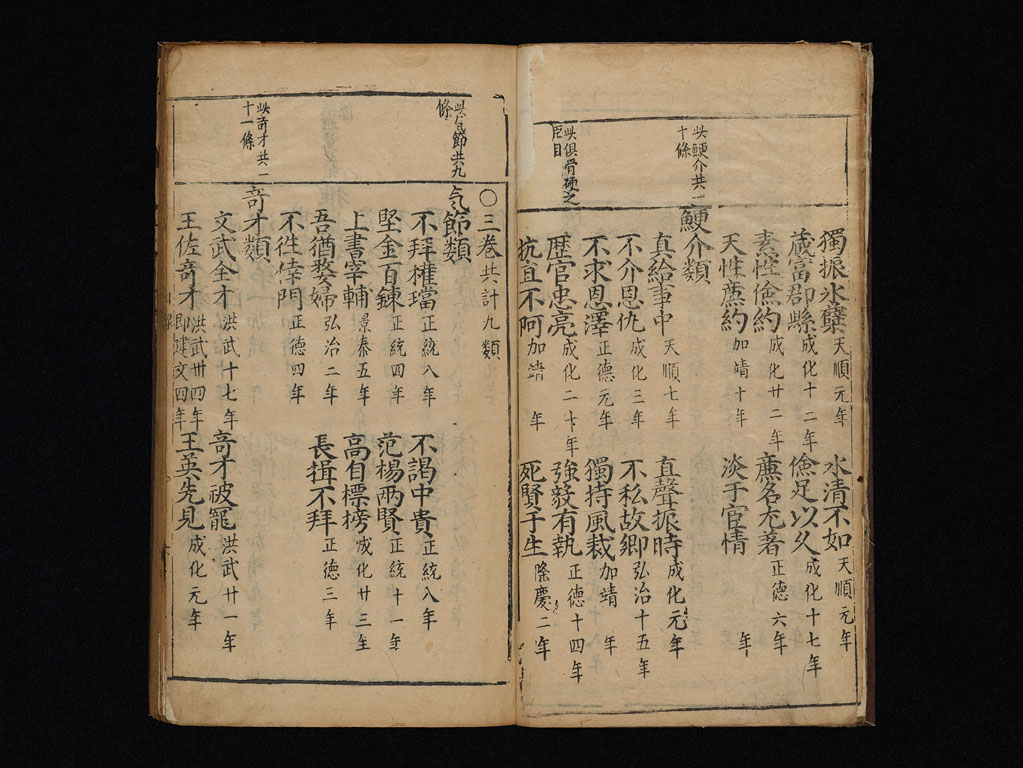 獨振氷蘗 天順元年 水清不如 天順元年
蔵富郡縣 成化十二年 儉足以久 成化十七年
素性儉約 成化廿二年 㢘名尤著 正德六年
天性㢘約 加靖十年 淡于宦情 年
此鯁介共一
十條
鯁介類
真給事中 天順七年 直聲振時 成化元年
不介恩仇 成化三年 不私故卿 弘治十五年
不求恩澤 正德元年 獨持風裁 加靖 年
歷官忠亮 成化二十年 強毅有執 正德十四年
抗直不阿 加靖 年 死賢于生 隆慶二年
此俱骨硬之
臣目
〇三巻共計九類
此气節共九
條
气節類
不拜權璫 正統八年 不謁中貴 正統八年
堅金百鍊 正統四年 范楊兩賢 正統十一年
上書宰輔 景泰五年 高自標榜 成化廿三年
吾猶嫠婦 弘治二年 長揖不拜 正德三年
不徃倖門 正德四年
此竒才共一
十一條
竒才類
文武全才 洪武十七年 竒才被寵 洪武廿一年
王佐竒才 洪武卅四年 即建文四年 王英先見 成化元年